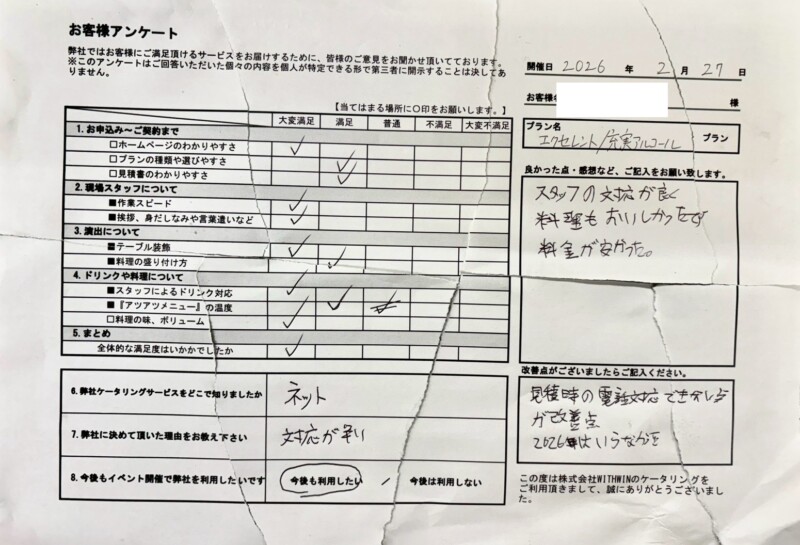 お客様アンケート
弊社ではお客様にご満足頂けるサービスをお届けするために、皆様のご意見をお聞かせ頂いております。
※このアンケートはご回答いただいた個々の内容を個人が特定できる形で第三者に開示することは決してあ
りません。
開催日 2026 年 2 月 27 日
お客様名 様
プラン名
エクセレント/充実アルコール プラン
【当てはまる場所に〇印をお願いします。】
大変満足 満足 普通 不満足 大変不満足
1. お申込み～ご契約まで
□ホームページのわかりやすさ ✓
□プランの種類や選びやすさ ✓
□見積書のわかりやすさ ✓
2. 現場スタッフについて ✓
■作業スピード ✓
■挨拶、身だしなみや言葉遣いなど ✓
3. 演出について
■テーブル装飾 ✓
■料理の盛り付け方 ✓
4. ドリンクや料理について ✓
■スタッフによるドリンク対応 ✓
■『アツアツメニュー』の温度 ✓
□料理の味、ボリューム ✓
5. まとめ
全体的な満足度はいかがでしたか ✓
良かった点・感想など、ご記入をお願い致します。
スタッフの対応が良く
料理もおいしかったです
料金が安かった。
改善点がございましたらご記入ください。
見積時の電話対応
が改善点
2026年
6. 弊社ケータリングサービスをどこで知りましたか ネット
7. 弊社に決めて頂いた理由をお教え下さい 対応が早い
8. 今後もイベント開催で弊社を利用したいです 今後も利用したい / 今後は利用しない
この度は株式会社WITHWINのケータリングを
ご利用頂きまして、誠にありがとうございまし
た。